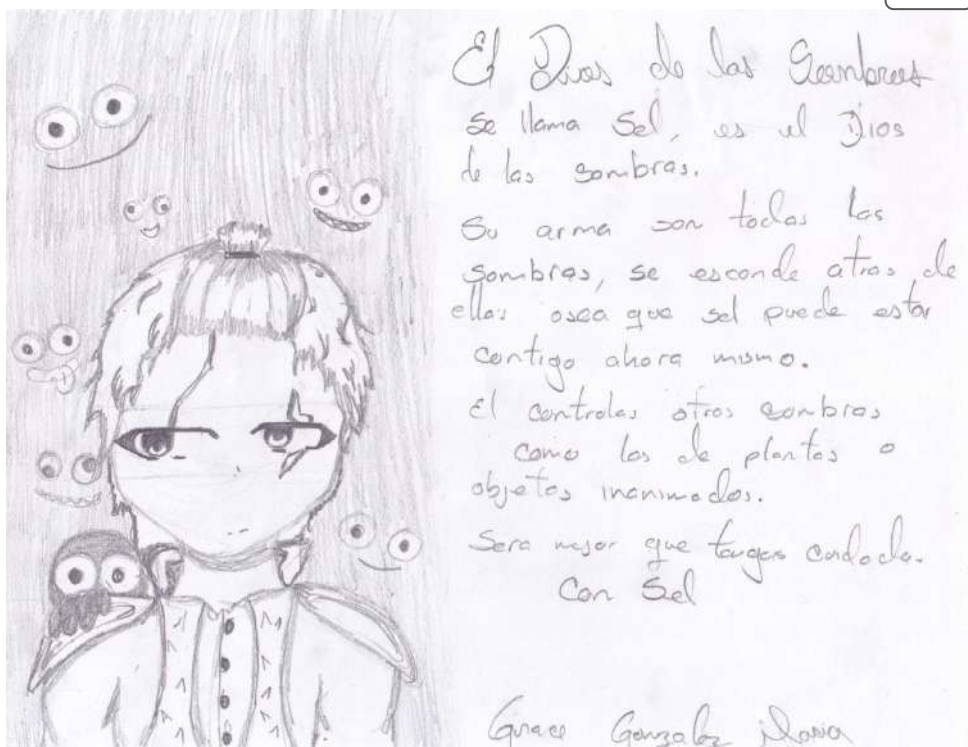 El Dios de las Sombras
se llama Sel, es el Dios
de las sombras.
Su arma son todas las
sombras, se esconde atras de
ellas osea que sel puede estar
contigo ahora mismo.
El controlas otros sombras
como las de plantas o
objetos inanimados.
Sera mejor que tengas cuidado.
Con Sel
Grace Gonzalez